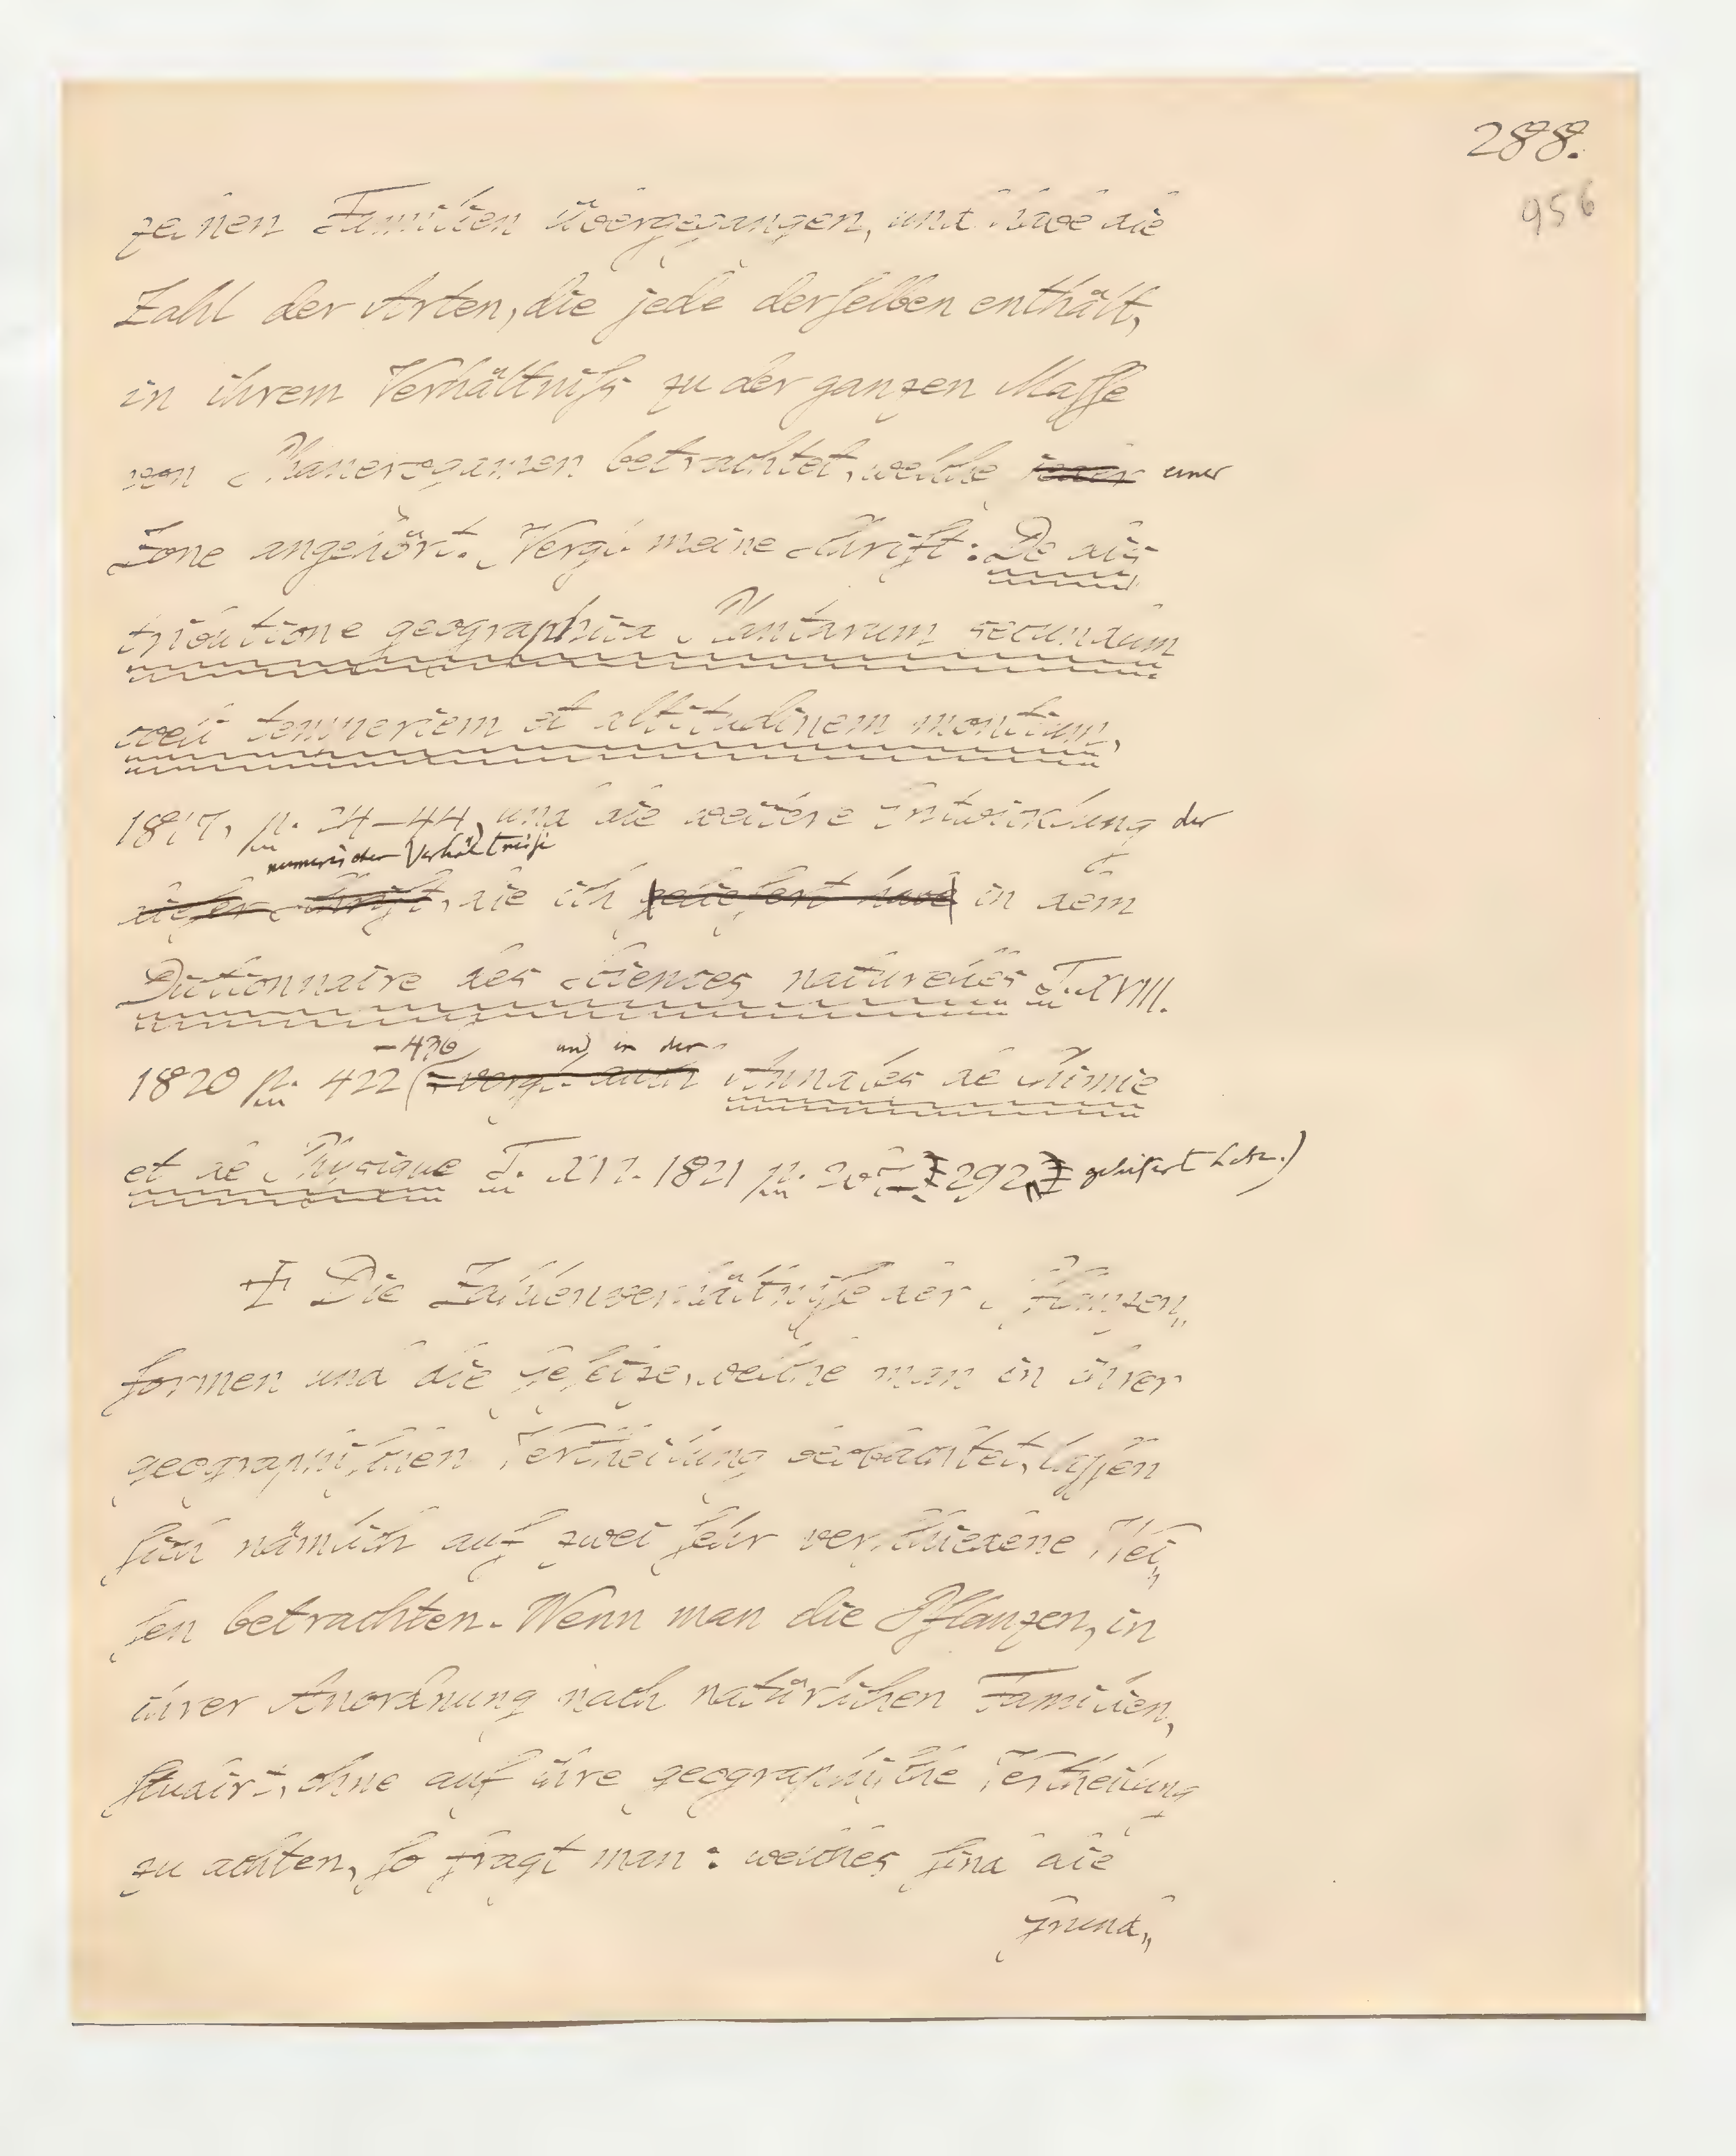 288.
956
zelnen Familien übergegangen, und habe die
Zahl der Arten, die jede derſelben enthält,
in ihrem Verhältniſs zu der ganzen Maſſe
von Phanerogamen betrachtet, welche jeder einer
Zone angehört. Vergl. meine Schrift: De dis
tributione geographica Plantarum secundum
coeli temperiem et altitudinem montium,
1817, p. 24–44, und die weitere Entwicklung der
numerischen Verhältniſse
dieſer Schrift, die ich geliefert habe in dem
Dictionnaire des Sciences naturelles T. XVIII.
–436 und in den
1820 p. 422 (– vergl. auch Annales de Chimie
et de Physique T. XVI. 1821 p. 267–292 geliefert habe.)
Die Zahlenverhältniſſe der Pflanzen„
formen und die Geſetze, welche man in ihrer
geographiſchen Vertheilung beobachtet, laſſen
ſich nämlich auf zwei ſehr verſchiedene Wei„
ſen betrachten. Wenn man die Pflanzen, in
ihrer Anordnung nach natürlichen Familien,
ſtudirt, ohne auf ihre geographiſche Vertheilung
zu achten, ſo fragt man: welches ſind die
Grund„